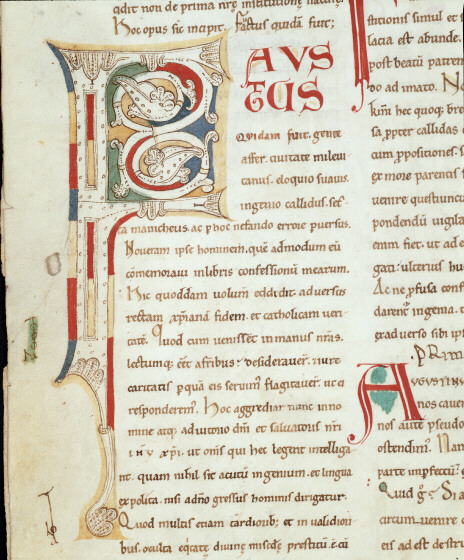 qdit non de prima nr̄e institutione nature
hoc opus sic incipit. Faustus quidā fuit;
FAVS
TUS
Quidam fuit. gente
affer. ciuitate mileui
tanus. eloquio suauis.
ingenio callidus. sec
ta manicheus. ac p hoc nefando errore puersus.
Noueram ipse hominem. quē admodum eū
cōmemoraui inlibris confessionū mearum.
Hic quoddam volum̄ eddidit. aduersus
rectam xp̄ianā fidem. et catholicam ueri
tatē. Quod cum uenisset in manus nr̄as.
lectumq; eēt a fribus; desiderauer̄. iure
caritatis p quā eis seruim̄ flagitauer̄. ut ei
responderem̄. Hoc aggrediar nunc inno
mine atq; adiutorio dn̄i et saluatoris nr̄i
ihu xp̄i. ut om̄s qui hec legent intelliga
nt. quam nihil sit acutū ingenium. et lingua
expolita. nisi adn̄o gressus hominis dirigatur.
Quod multis etiam tardiorib; et in ualidiori
bus. occulta eq̄tate diuine miscd̄e prestitū ē. cū
stitutionis simul et s
lacia est abunde.
post beatū patrem
uo ad imato. No
kīm hec quoq; bre
sa ppter callidas
cum pposition̄es. s
ex more parentis
uenire questiuncu
pondendū uigila
enim fiet. ut ad e
gati. ulterius hu
Ac ne pfusa conf
darent̄ ingenia. t
grad uerso sibi ip
PRIM
AUGUSTINUS
nos cauen
nos aute pseudo
ostendim̄. Nam
parte impfectū. s
Quid ḡ. Si a
circum uenire
ei ad est de destr